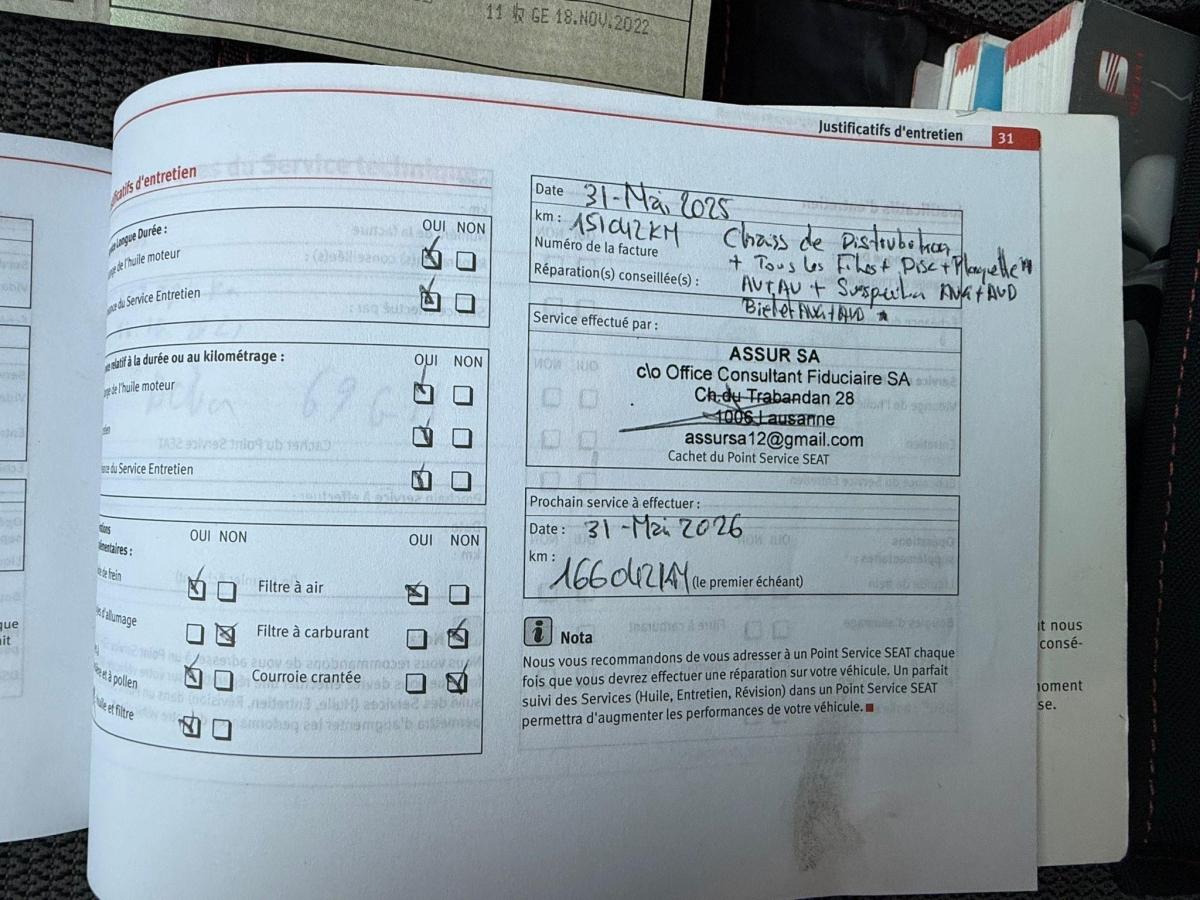 11 GE 18.NOV.2022
Justificatifs d'entretien 31
ificatifs d'entretien
Longue Durée :
OUI NON
ge de l'huile moteur
ance du Service Entretien
relatif à la durée ou au kilométrage :
OUI NON
ge de l'huile moteur
ien
nce du Service Entretien
tions
émentaires :
OUI NON OUI NON
e de frein Filtre à air
es d'allumage Filtre à carburant
e et à pollen Courroie crantée
huile et filtre
Date 31-Mai 2025
km : 151042KM
Numéro de la facture
Réparation(s) conseillée(s) :
Chais de Distribution
+ Tous les Filtes + Disc + Plaquette
AV+AV + Suspection AVG+AVD
Bielet AVG+AVD
Service effectué par :
ASSUR SA
c\o Office Consultant Fiduciaire SA
Ch.du Trabandan 28
1006 Lausanne
assursa12@gmail.com
Cachet du Point Service SEAT
Prochain service à effectuer :
Date : 31-Mai 2026
km :
166042KM (le premier échéant)
i Nota
Nous vous recommandons de vous adresser à un Point Service SEAT chaque
fois que vous devrez effectuer une réparation sur votre véhicule. Un parfait
suivi des Services (Huile, Entretien, Révision) dans un Point Service SEAT
permettra d'augmenter les performances de votre véhicule.
t nous
consé-
moment
se.
que
it